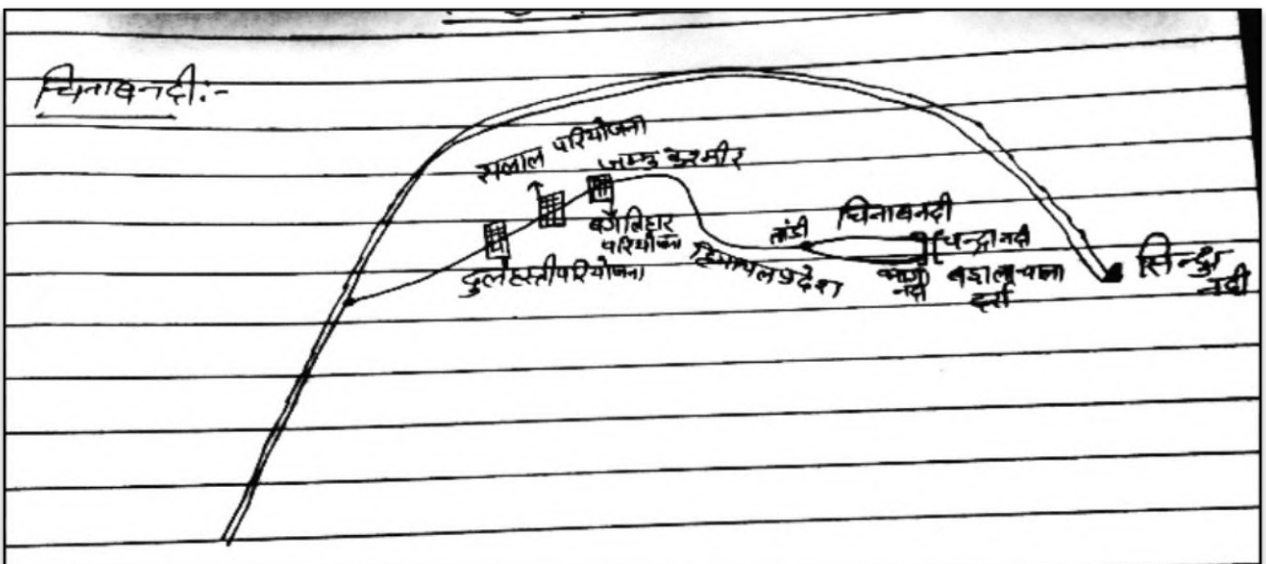 चिनाब नदी :-
सलाल परियोजना
जम्मू कश्मीर
बगलिहार
परियोजना
दुलहस्ती परियोजना
हिमाचल प्रदेश
तांडी
चिनाब नदी
चन्द्रा नदी
भागा
नदी
दर्रा
सिन्धु
नदी